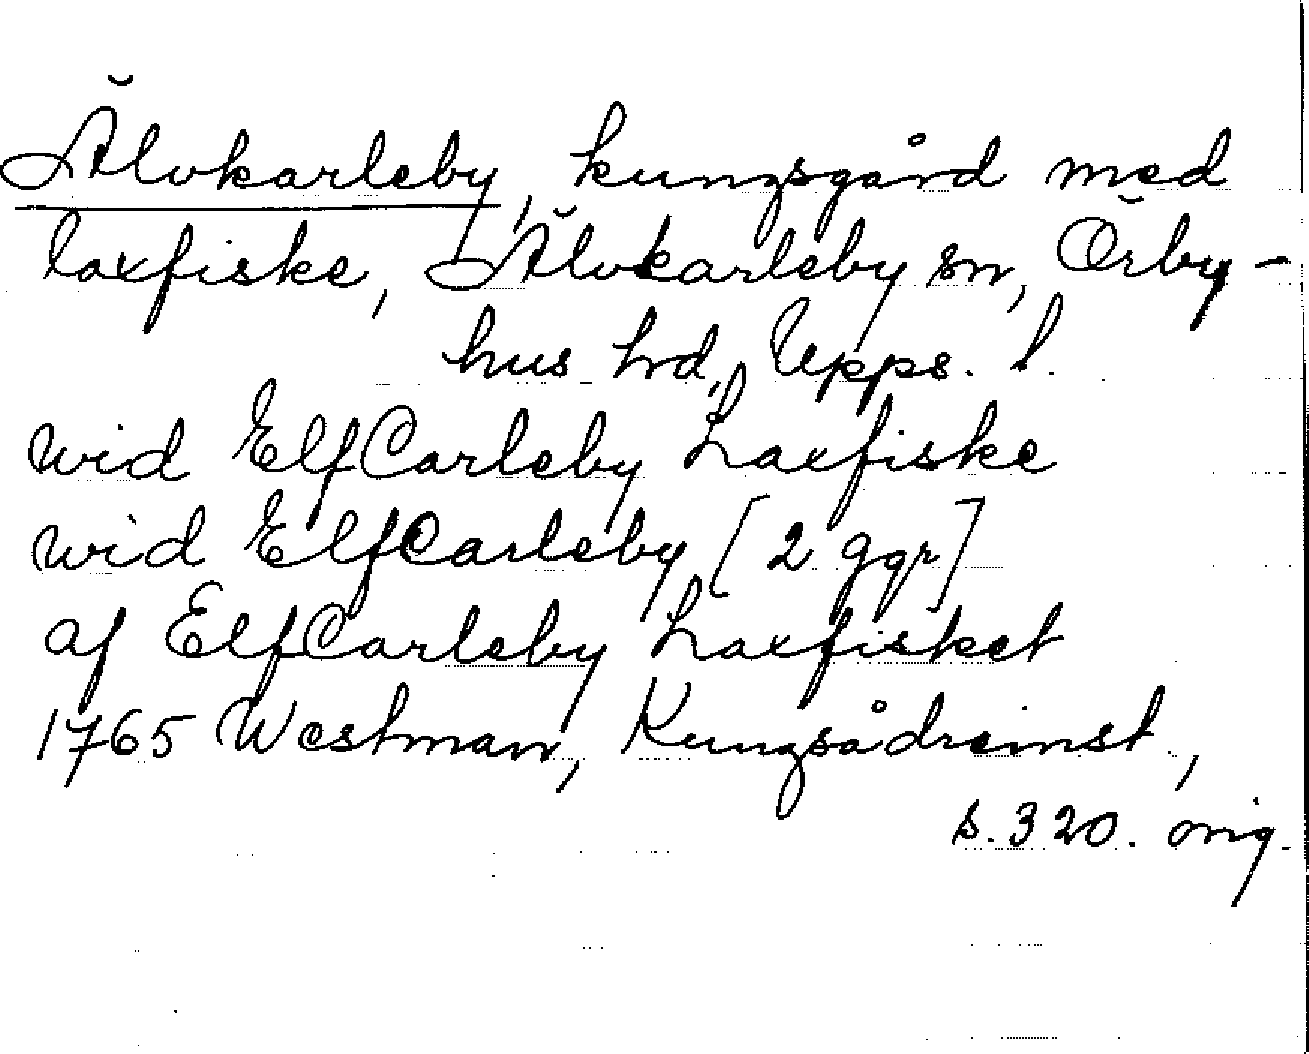 Älvkarleby, kungsgård med
laxfiske, Älvkarleby sn, Örby-
hus hrd, Upps. l.
wid ElfCarleby Laxfiske
wid ElfCarleby [2 ggr]
af ElfCarleby Laxfisket
1765 Westman, Kungsådreinst.,
s. 320. orig.